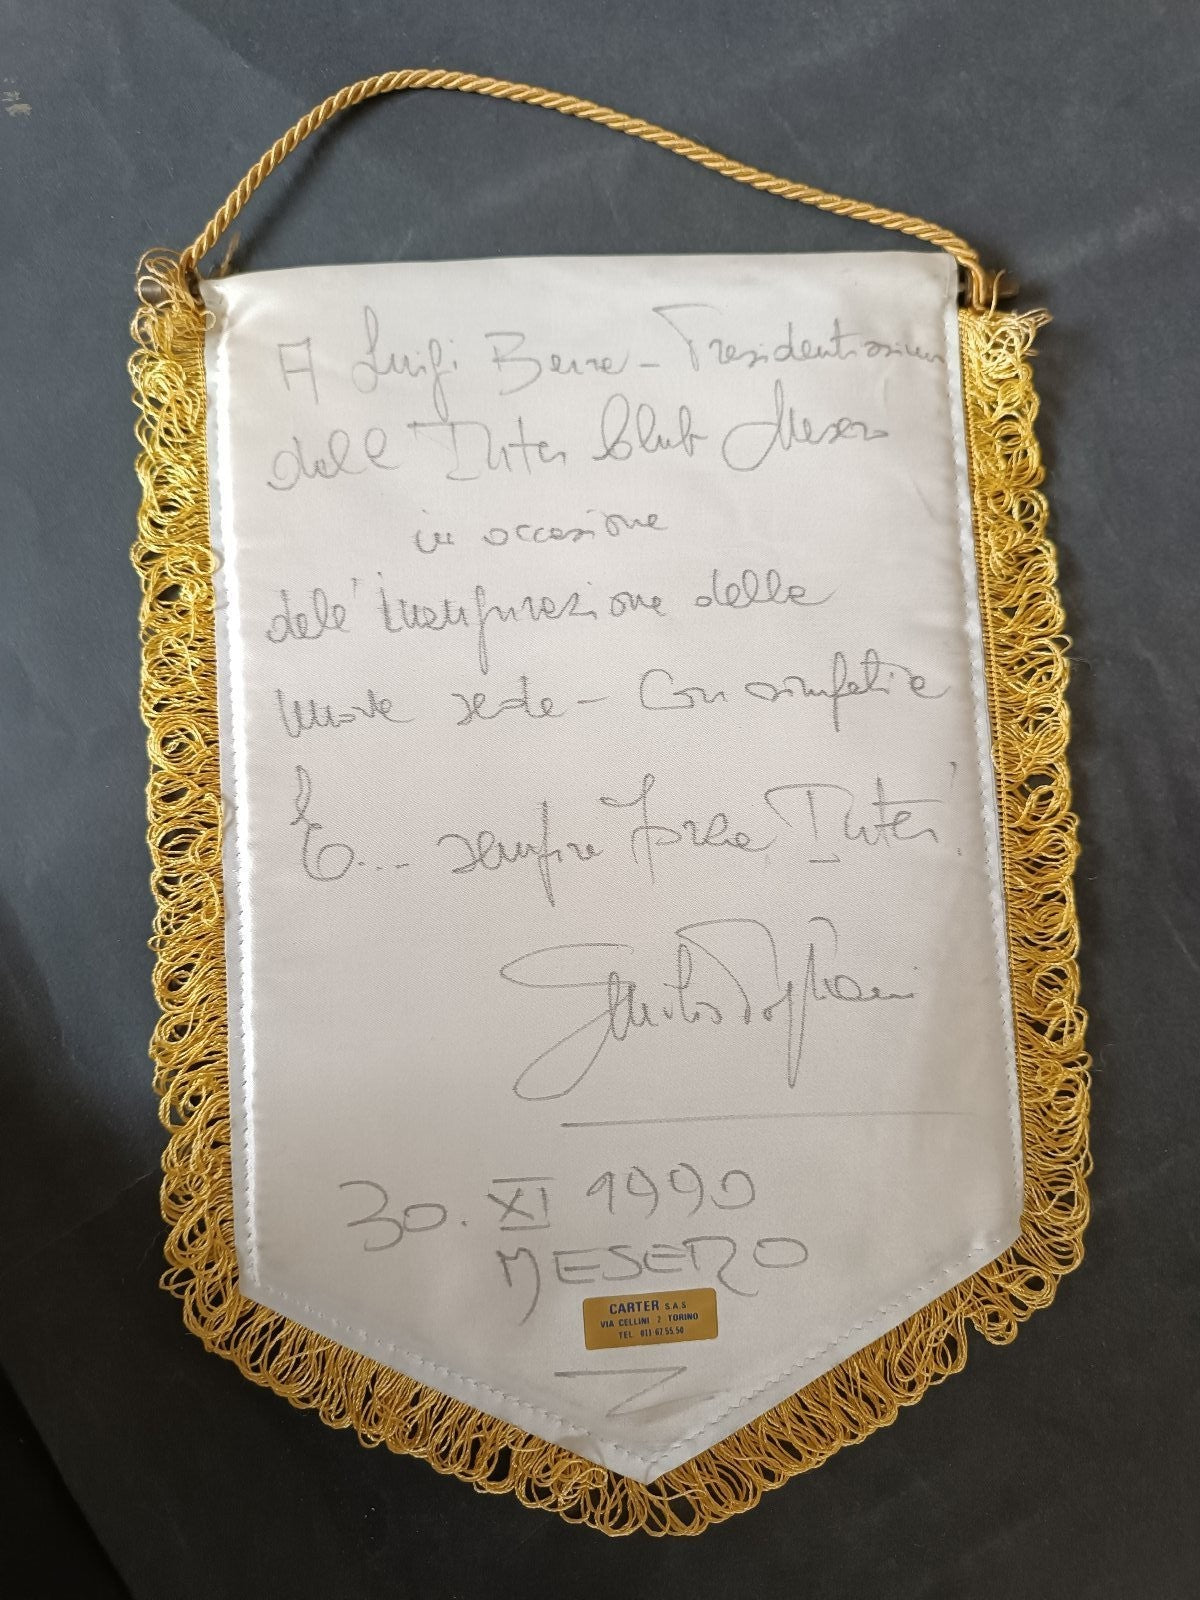 A Luigi Berra - Presidentissimo
dell Inter Club Mesero
in occasione
dell'inaugurazione della
nuova sede - Con simpatia
E... sempre forza Inter!
30. XI 1990
MESERO
CARTER S.A.S
VIA CELLINI 2 TORINO
TEL 011-67.55.50